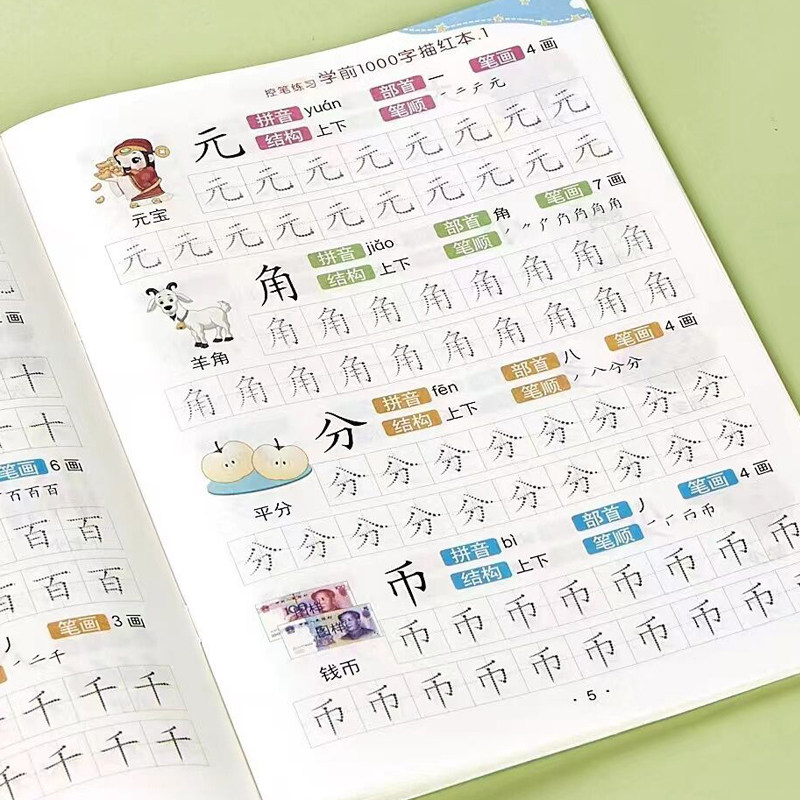 控笔练习 学前1000字描红本.1
元 拼音 yuán 部首 一 笔画 4画
结构 上下 笔顺 一 二 テ 元
元 元 元 元 元 元 元 元
元宝
元 元 元 元 元 元 元 元 元 元
角 拼音 jiǎo 部首 角 笔画 7画
结构 上下 笔顺 角 角 角
角 角 角 角 角 角 角 角
羊角
角 角 角 角 角 角 角 角 角 角
分 拼音 fēn 部首 八 笔画 4画
结构 上下 笔顺 丿 八 分 分
分 分 分 分 分 分 分 分
平分
分 分 分 分 分 分 分 分 分 分
币 拼音 bì 部首 丿 笔画 4画
结构 上下 笔顺 币
币 币 币 币 币 币 币 币
100 图样
图样
钱币
币 币 币 币 币 币 币 币 币
·5·
画
十
十
笔画 6画
百 百 百
百 百
百 百 百
笔画 3画
丿
一 二 千
千 千 千
千 千 千